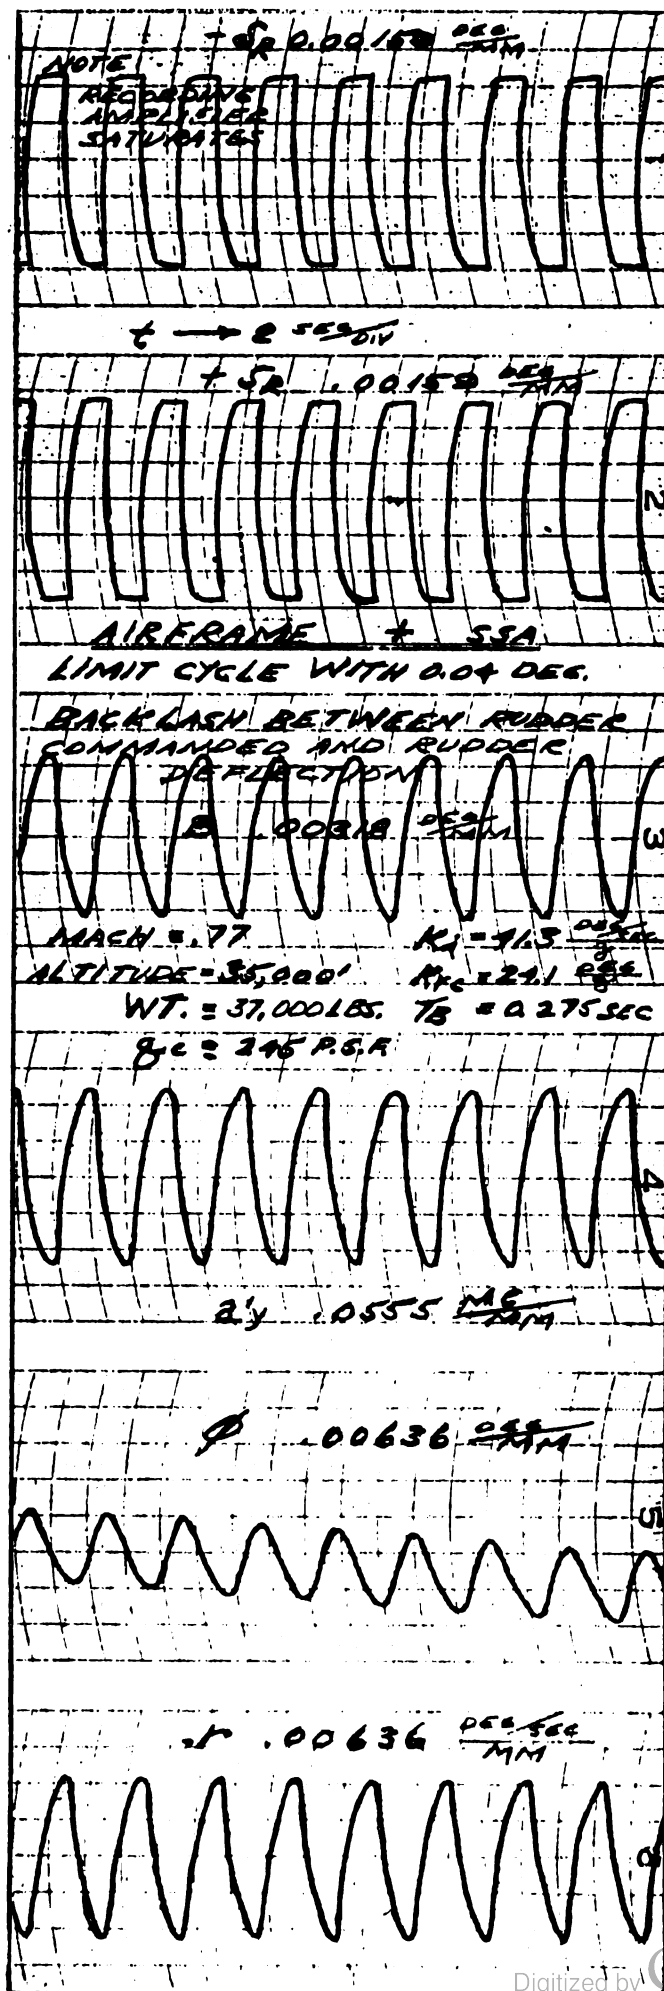 - δR 0.00159 DEG/MM
NOTE
RECORDING
AMPLIFIER
SATURATES
1
t → 2 SEC/DIV
+ δR .00159 DEG/MM
2
AIRFRAME + SSA
LIMIT CYCLE WITH 0.04 DEG.
BACKLASH BETWEEN RUDDER
COMMANDED AND RUDDER
DEFLECTION
β .00318 DEG/MM
3
MACH = .77
ALTITUDE = 35,000'
WT. = 37,000 LBS. TB = 0.275 SEC
qc = 245 P.S.F.
4
a'y .0555 MG/MM
ϕ .00636 DEG/MM
5
r .00636 DEG/SEC/MM
6
Digitized by